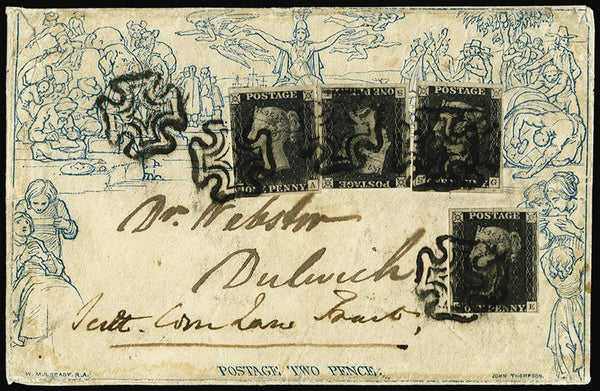 POSTAGE
ONE PENNY
A
S
ONE PENNY
POSTAGE
POSTAGE
S
PENNY
G
Dr. Webster
Dulwich
POSTAGE
ONE PENNY
E
Lane
POSTAGE, TWO PENCE.
W. MULREADY. R.A.
JOHN THOMPSON.